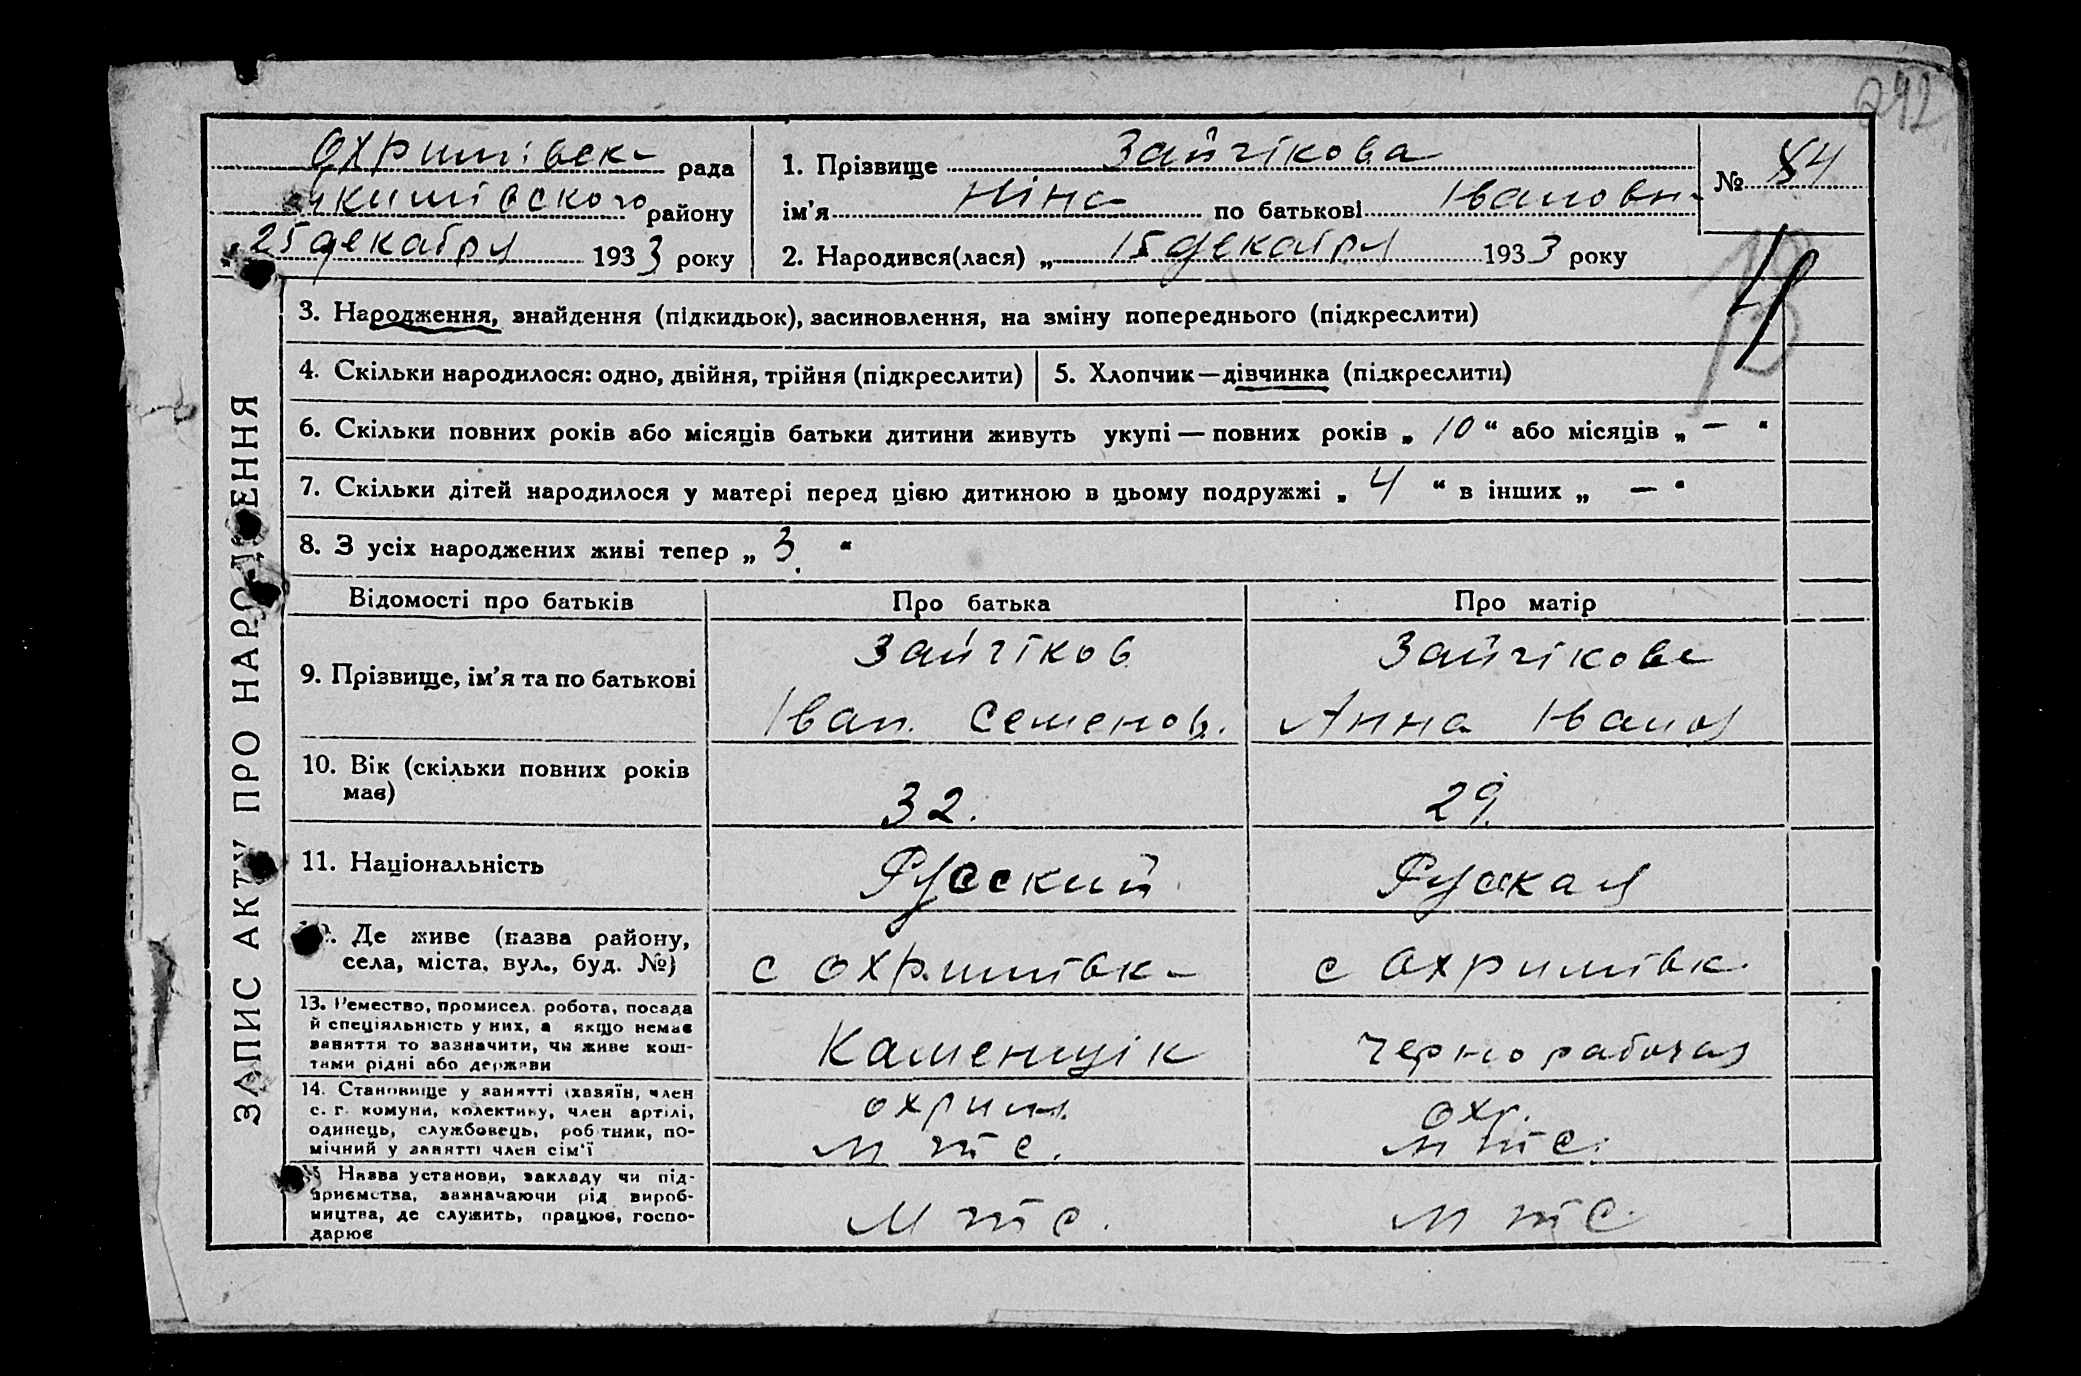 292
Охримівск рада
Якимівского району
„25 декабря 1933 року
1. Прізвище Зайчікова
ім’я Ніна по батькові Івановн
2. Народився(лася) „ 15 декабря 1933 року
№ 84
ЗАПИС АКТУ ПРО НАРОДЖЕННЯ
3. Народження, знайдення (підкидьок), засиновлення, на зміну попереднього (підкреслити)
4. Скільки народилося: одно, двійня, трійня (підкреслити)
5. Хлопчик—дівчинка (підкреслити)
6. Скільки повних років або місяців батьки дитини живуть укупі — повних років „ 10 “ або місяців „ — “
7. Скільки дітей народилося у матері перед цією дитиною в цьому подружжі „ 4 “ в інших „ — “
8. З усіх народжених живі тепер „ 3 “
Відомості про батьків
Про батька
Про матір
9. Прізвище, ім’я та по батькові
Зайчіков
Іван. Семенов.
Зайчікова
Анна Іванов
10. Вік (скільки повних років
має)
32.
29.
11. Національність
Русский
Руская
12. Де живе (назва району,
села, міста, вул., буд. №)
с Охримівк
с Охримівк
13. Ремество, промисел, робота, посада
й спеціяльність у них, а якщо немає
заняття то зазначити, чи живе кош-
тами рідні або держави
Каменщік
Чернорабочая
14. Становище у занятті (хазяїн, член
с. г. комуни, колективу, член артілі,
одинець, службовець, робітник, по-
мічний у занятті член сім’ї
охрим.
м т с.
охр.
м т с.
15 Назва установи, закладу чи під-
приємства, зазначаючи рід вироб-
ництва, де служить, працює, госпо-
дарює
М т с.
М т с.